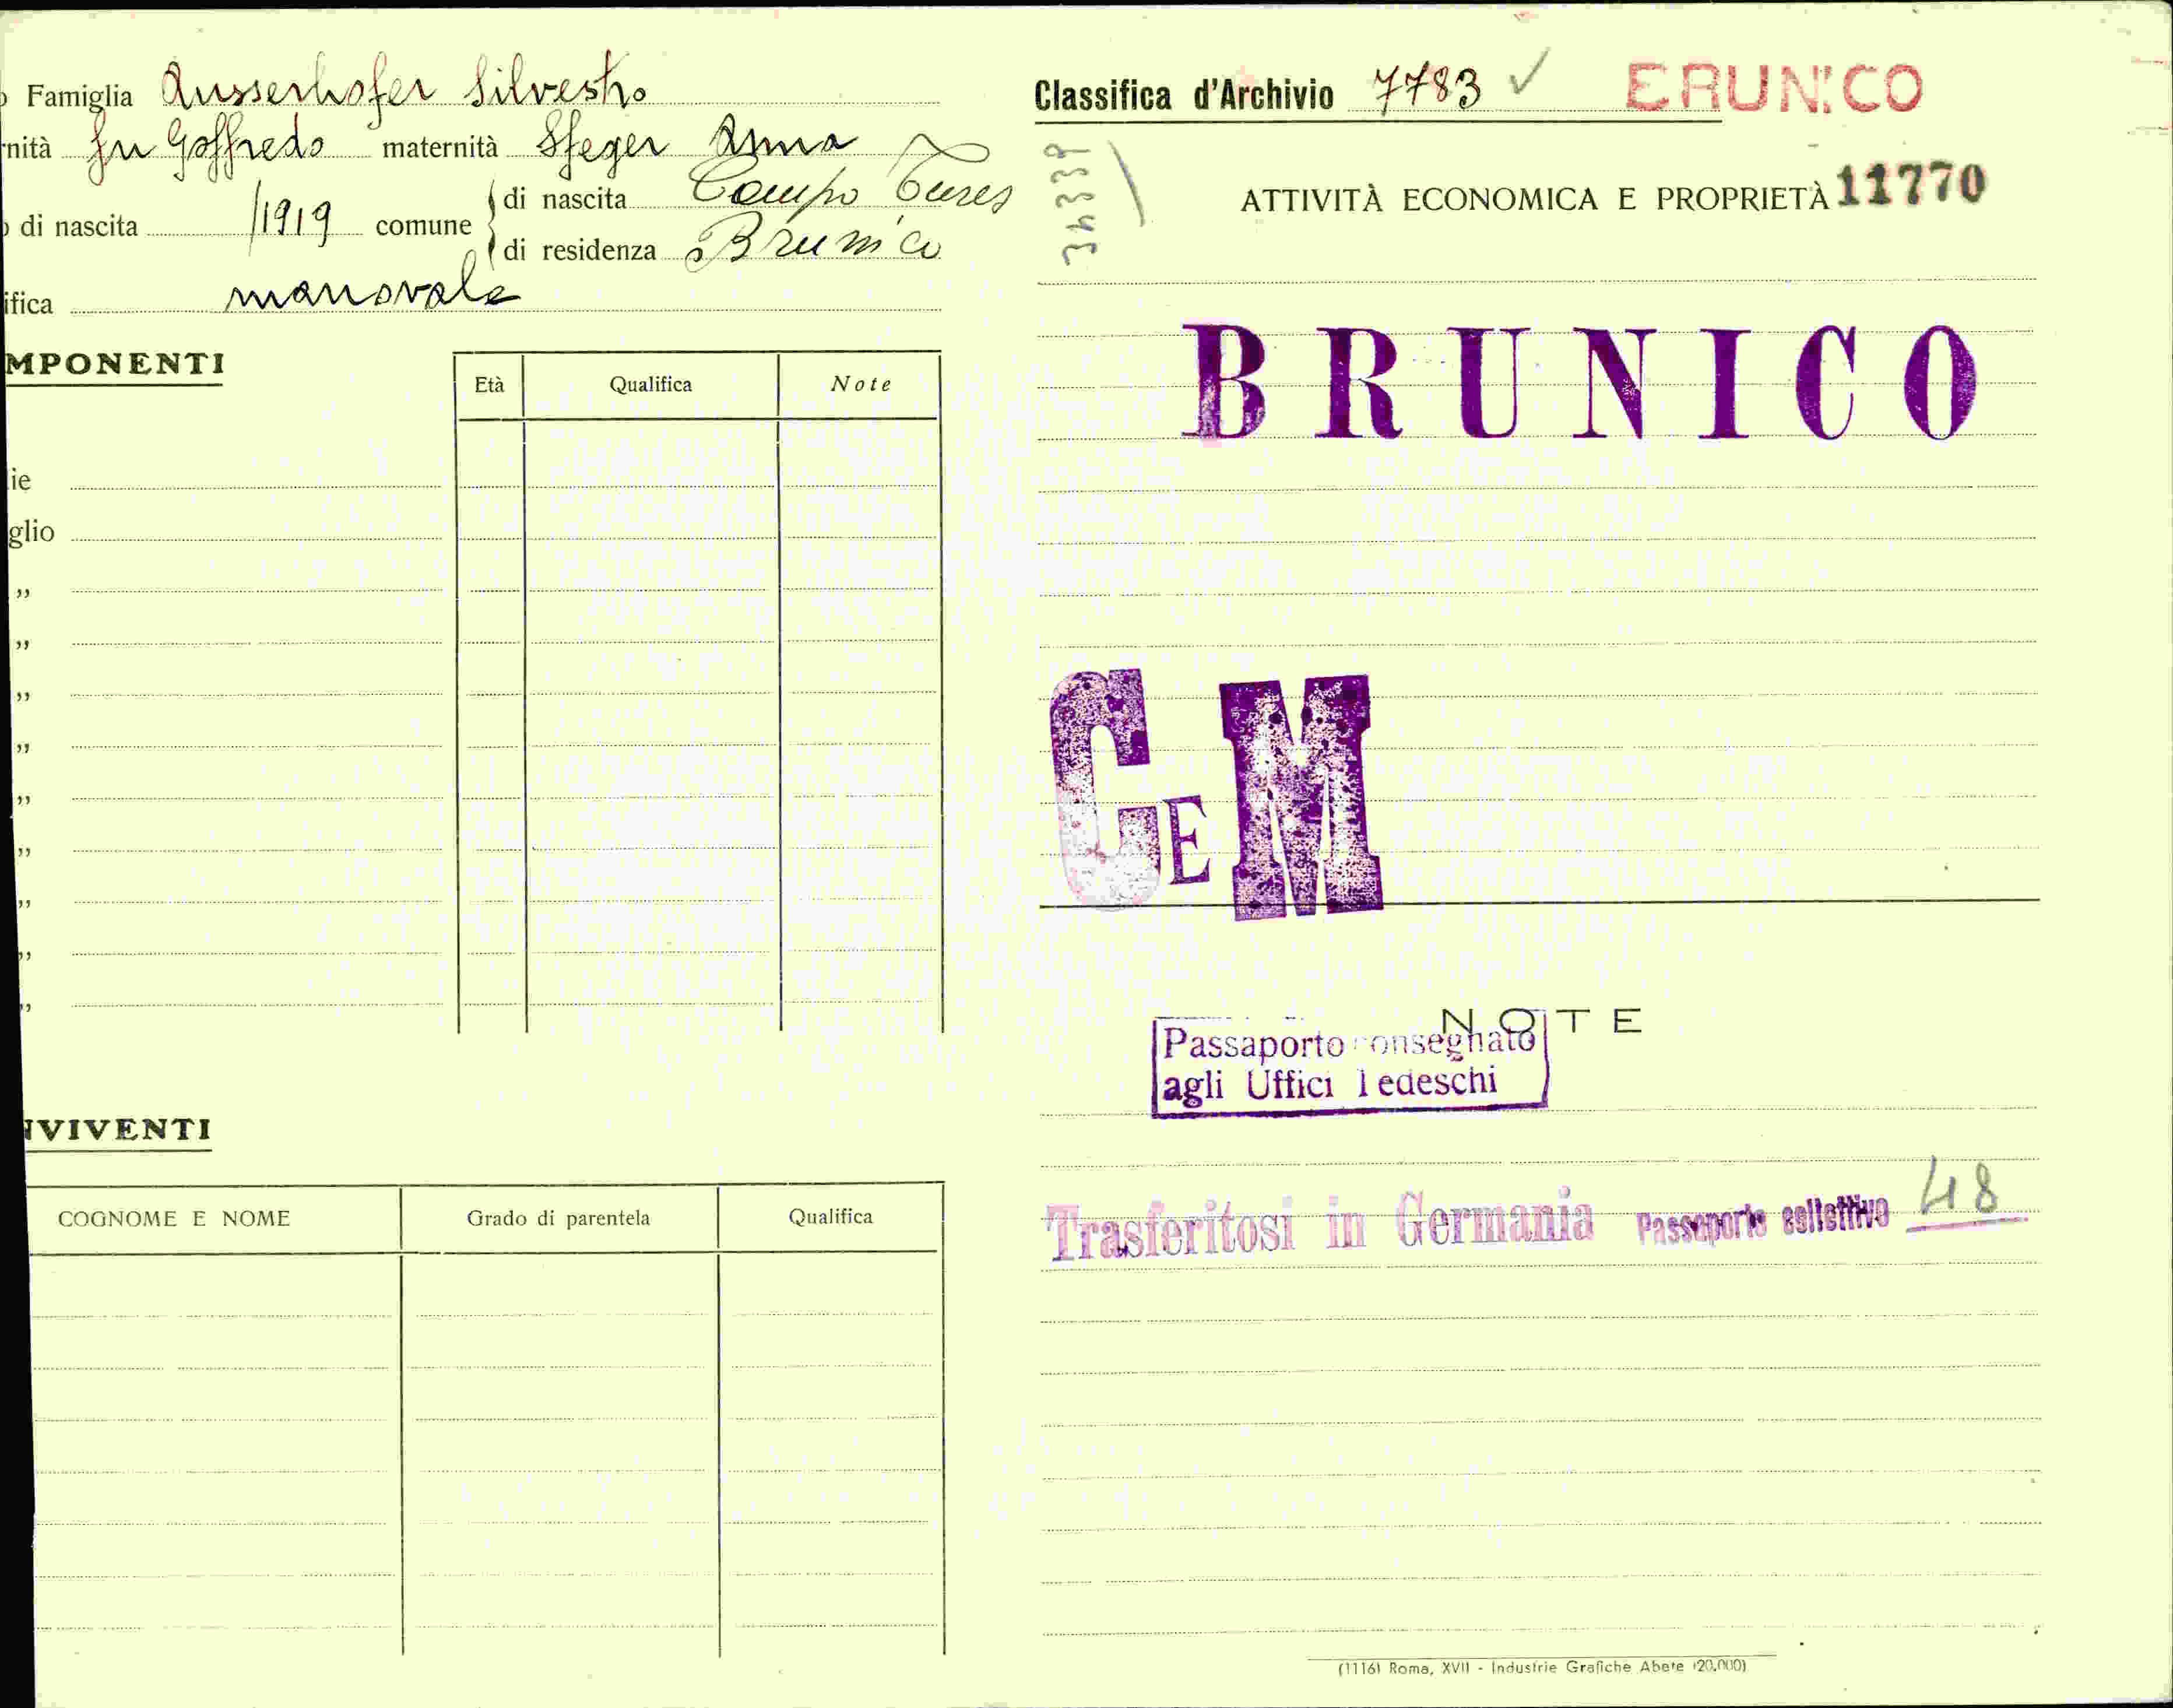 Famiglia Ausserhofer Silvestro
nità fu Goffredo maternità Steger Anna
di nascita /1919 comune di nascita Campo Tures
di residenza Brunico
ifica manovale
MPONENTI
Età Qualifica Note
ie
glio
"
"
"
"
"
"
"
"
"
NVIVENTI
COGNOME E NOME Grado di parentela Qualifica
Classifica d'Archivio 7783 ✓ BRUNICO
ATTIVITÀ ECONOMICA E PROPRIETÀ 11770
BRUNICO
GEM
NOTE
Passaporto consegnato
agli Uffici Tedeschi
Trasferitosi in Germania Passaporto collettivo 48
(1116) Roma, XVII - Industrie Grafiche Abete (20.000)